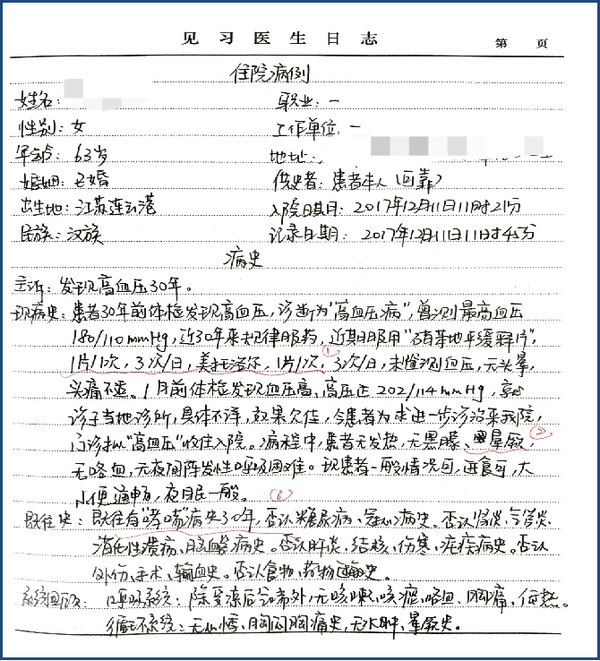 见习医生日志 第 页
住院病例
姓名： 职业：一
性别：女 工作单位：一
年龄：63岁 地址：
婚姻：已婚 供史者：患者本人（可靠）
出生地：江苏连云港 入院日期：2017年12月11日11时21分
民族：汉族 记录日期：2017年12月11日11时45分
病史
主诉：发现高血压30年。
现病史：患者30年前体检发现高血压，诊断为"高血压病"，曾测最高血压
180/110mmHg，近30年来规律服药，近期服用"硝苯地平缓释片"，
1片/1次，3次/日，美托洛尔，1片/1次，3次/日，未监测血压，无头晕，
①
头痛不适。1月前体检发现血压高，高压在202/114mmHg，就
诊于当地诊所，具体不详，效果欠佳，今患者为求进一步诊治来我院，
门诊拟"高血压"收住入院。病程中，患者无发热，无黑朦、晕厥，
②
无咯血，无夜间阵发性呼吸困难。现患者一般情况可，进食可，大
小便通畅，夜眠一般。
③
既往史：既往有"哮喘"病史30年，否认糖尿病、冠心病史。否认肾炎、气管炎、
消化性溃疡、脑血管病史。否认肝炎、结核、伤寒、疟疾病史。否认
外伤、手术、输血史。否认食物、药物过敏史。
系统回顾：呼吸系统：除受凉后会希外，无咳嗽、咳痰、咯血、胸痛、低热。
循环系统：无心悸、胸闷胸痛史，无水肿、晕厥史。